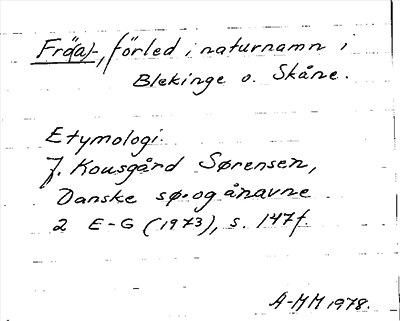 Frö(a)-, förled i naturnamn i
Blekinge o. Skåne.
Etymologi.
J. Kousgård Sørensen,
Danske sø- og ånavne
2 E-G (1973), s. 147f
A-MM 1978.